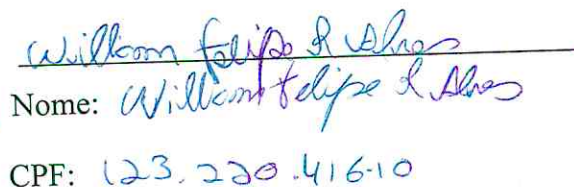 William Felipe R Alves
Nome: William Felipe R Alves
CPF: 123.220.416-10